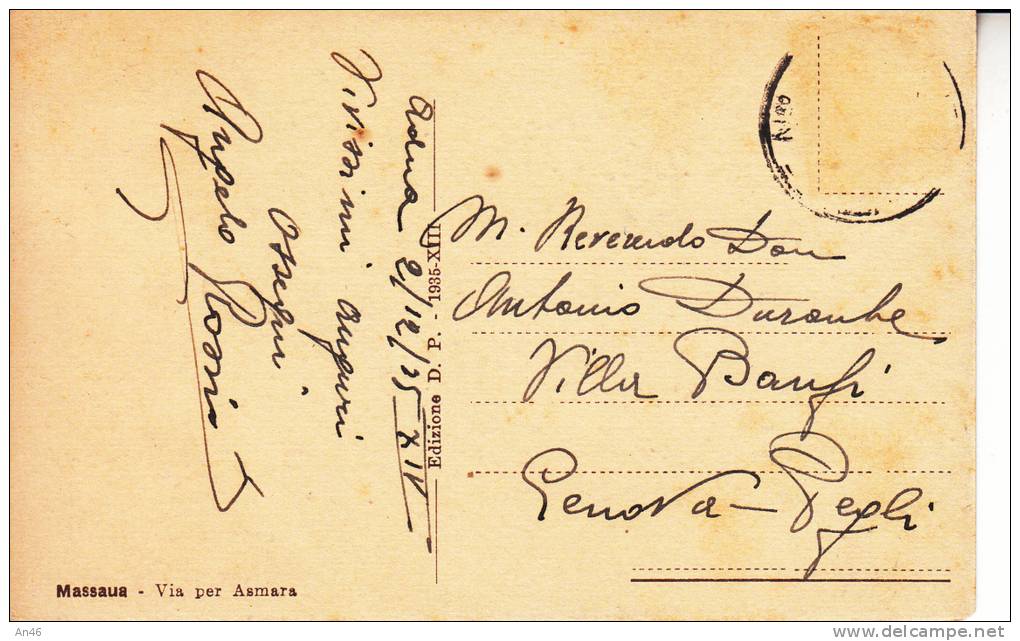 Adua 2/12/35 XIV
Vivissimi auguri
Ossequi
Angelo Rossi
Edizione D. P. - 1935-XIII
M. Reverendo Don
Antonio Durante
Villa Banfi
Genova - Pegli
Massaua - Via per Asmara
An46
delcampe.net